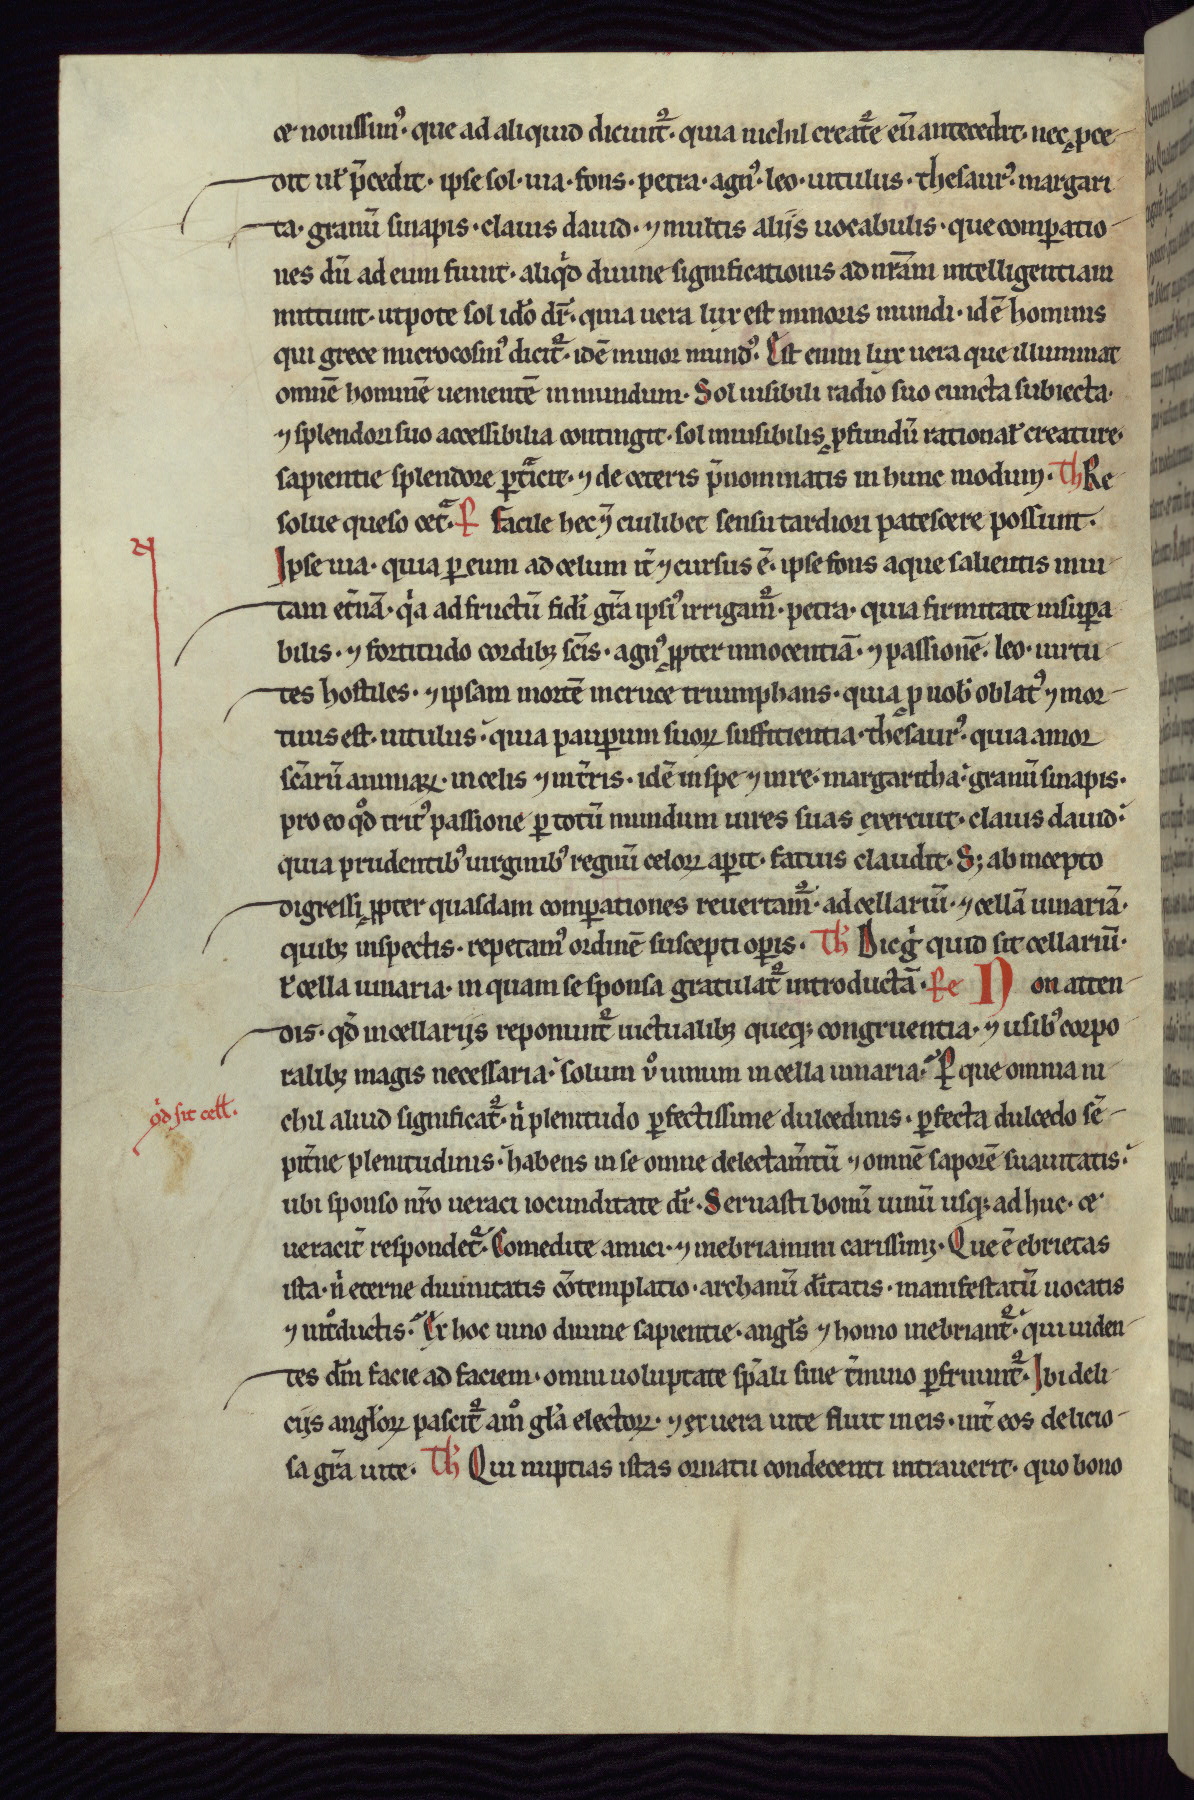 et nouissim᷒· que ad aliquid dicunt᷑· quia nichil creatē eū antecedit· nec p̱ce
dit ul̄ p̄cedit· ipse sol· uia· fons· petra· agn᷒· leo· uitulus· thesaur᷒· margari
ta· granū sinapis· clauis dauid· ⁊ multis alijs uocabulis· que comꝑatio
nes dū ad eum fiunt· aliqͥd diuine significationis ad nr̄am intelligentiam
mittunt· utpote sol idō dr̄· quia uera lux est minoris mundi· idē hominis
qui grece microcosm᷒ dicit᷑· idē minor mund᷒· Est enim lux uera que illuminat
omnē hominē uenientē in mundum· Sol uisibili radio suo cuncta subiecta·
⁊ splendori suo accessibilia contingit· sol inuisibilis ꝓfundū rational̄ creature·
sapientie splendore ꝑtͣicit· ⁊ de ceteris p̄nominatis in hunc modum· Th Re
solue queso cetͣ· P̄ facile hec ⁊ cuilibet sensu tardiori patescere possunt·
Ipse uia· quia ꝑ eum ad celum it̄ ⁊ cursus ē· ipse fons aque salientis in ui
tam et̄nā· qͥa ad fructū fidī gr̄a ipsi᷒ irrigam᷑· petra· quia firmitate insuꝑa
bilis· ⁊ fortitudo cordibꝫ scīs· agn᷒ ꝓpter innocentiā· ⁊ passionē· leo· uirtu
tes hostiles· ⁊ ipsam mortē in cruce triumphans· quia ꝓ nob̄ oblat᷒ ⁊ mor
tuus est· uitulus· quia pauꝑum suoꝝ sufficientia· thesaur᷒· quia amor
scārū animaꝝ· in celis ⁊ in t̄ris· idē in spe ⁊ in re· margaritha· granū sinapis·
pro eo qͦd trit᷒ passione ꝑ totū mundum uires suas exercuit· clauis dauid·
quia prudentib᷒ uirginib᷒ regnū celoꝝ aꝑit· fatuis claudit· Sꝫ ab incepto
digressi ꝓpter quasdam comꝑationes reuertam᷑· ad cellariū· ⁊ cellā uinariā·
quibꝫ inspectis· repetam᷒ ordinē suscepti oꝑis· Th̄ Dic gͦ quid sit cellariū·
ł cella uinaria· in quam se sponsa gratulat᷑ introductā· Pe Non atten
dis· qd̄ in cellarijs reponunt᷑ uictualibꝫ queqꝫ congruentia· ⁊ usib᷒ corpo
ralibꝫ magis necessaria· solum uͦ uinum in cella uinaria· P̄ que omnia ni
qͥd sit cell̄·
chil aliud significat᷑· nͥ plenitudo ꝑfectissime dulcedinis· ꝑfecta dulcedo sē
pit̄ne plenitudinis· habens in se omne delectam̄tū ⁊ omnē saporē suauitatis·
ubi sponso nr̄o ueraci iocunditate dr̄· Seruasti bonū uinū usqꝫ adhuc· et
ueracit̄ respondetͣ· Comedite amici· ⁊ inebriamini carissimi· Que ē ebrietas
ista· nͥ eterne diuinitatis cōtemplatio· archanū d̄itatis· manifestatū uocatis
⁊ int̄ͦductis· Ex hoc uino diuine sapientie· angls̄ ⁊ homo inebriant᷑· qui uiden
tes dn̄m facie ad faciem· omni uoluptate sp̄ali siue t̄mino ꝑfruunt᷑· Ibi deli
cijs angl̄oꝝ pascit᷑ amͦ gl̄a electoꝝ· ⁊ ex uera uite fluit in eis· int̄ eos delicio
sa gr̄a uite· Th̄ Qui nuptias istas ornatu condecenti intrauerit· quo bono